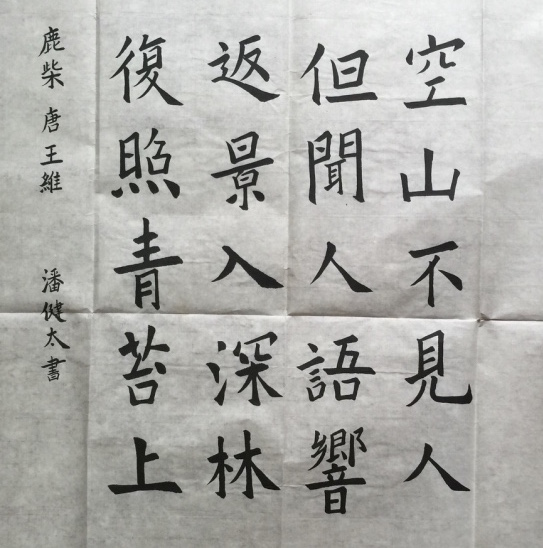 空山不見人
但聞人語響
返景入深林
復照青苔上
鹿柴 唐 王維 潘健太書